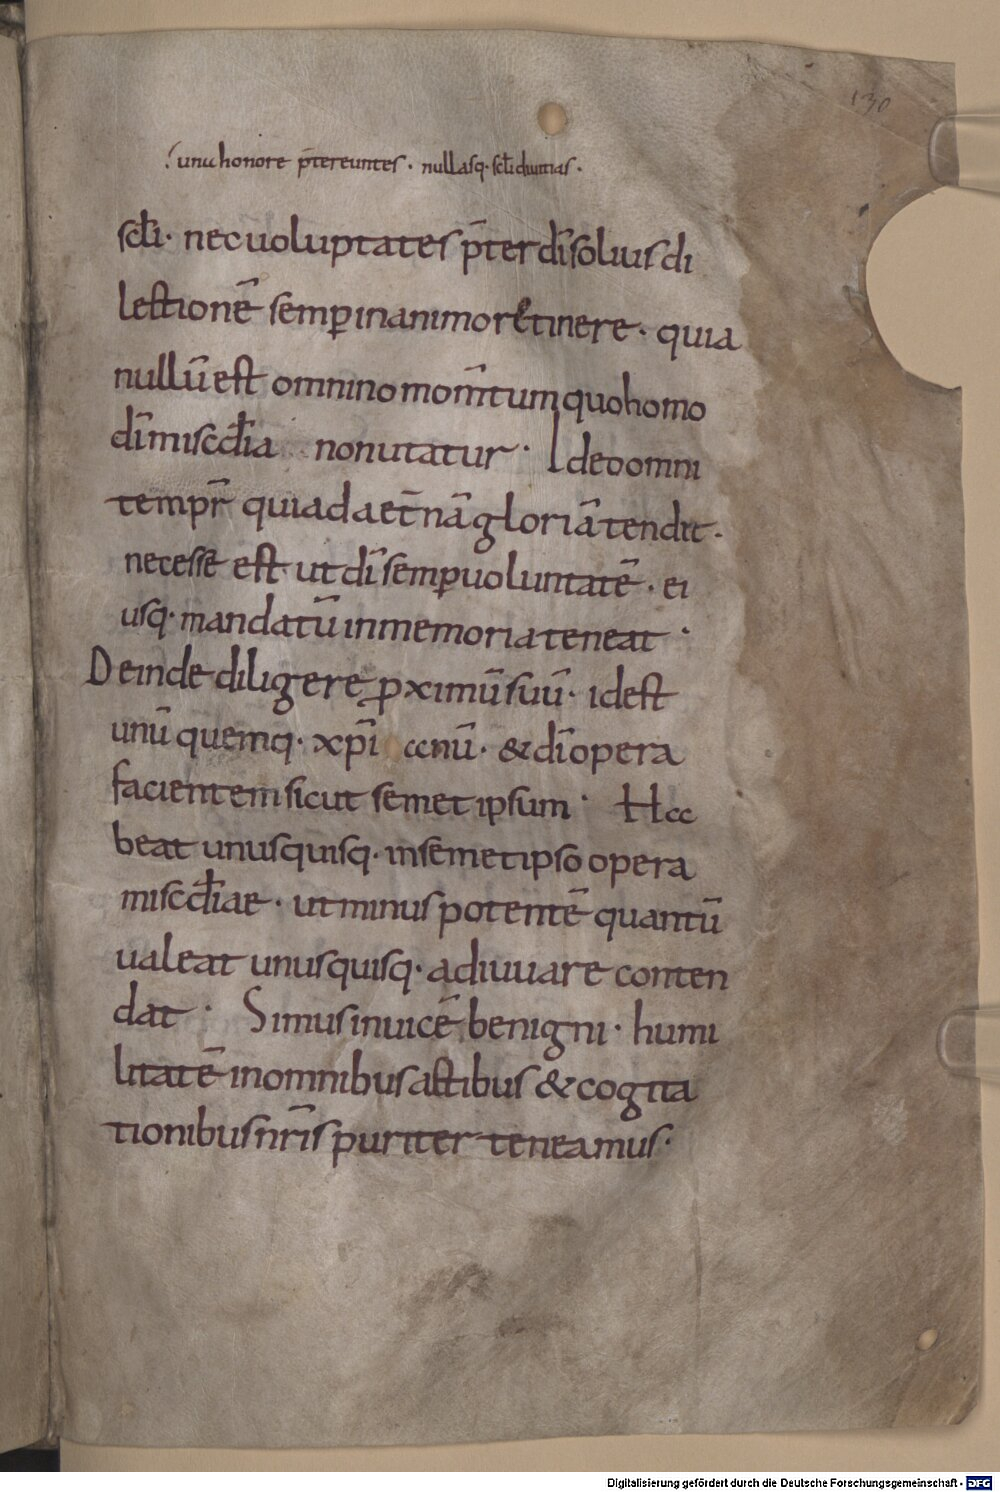 130
unu honore p̄tereuntes · nullasq· sc̄li diuitias ·
sc̄li· nec uoluptates p̄ter dī solius di
lectionē semp̲ in animo r&tinere · quia
nullū est omnino mom̄tum quo homo
dī misc̄dia non utatur · Ideo omni
temp̄r quia ad aet̄nā gloriā tendit ·
necesse est ut dī semp̲ uoluntatē · ei
usq· mandatū in memoria teneat ·
Deinde diligere ꝓximū suū · id est
unū quemq· xp̄i anū · & dī opera
facientem sicut semet ipsum · Ha
beat unusquisq· in semetipso opera
misc̄diae · ut minus potentē quantū
ualeat unusquisq· adiuuare conten
dat · Simus inuicē benigni · humi
litatē in omnibus actibus & cogita
tionibus nr̄is puriter teneamus ·
Digitalisierung gefördert durch die Deutsche Forschungsgemeinschaft - DFG